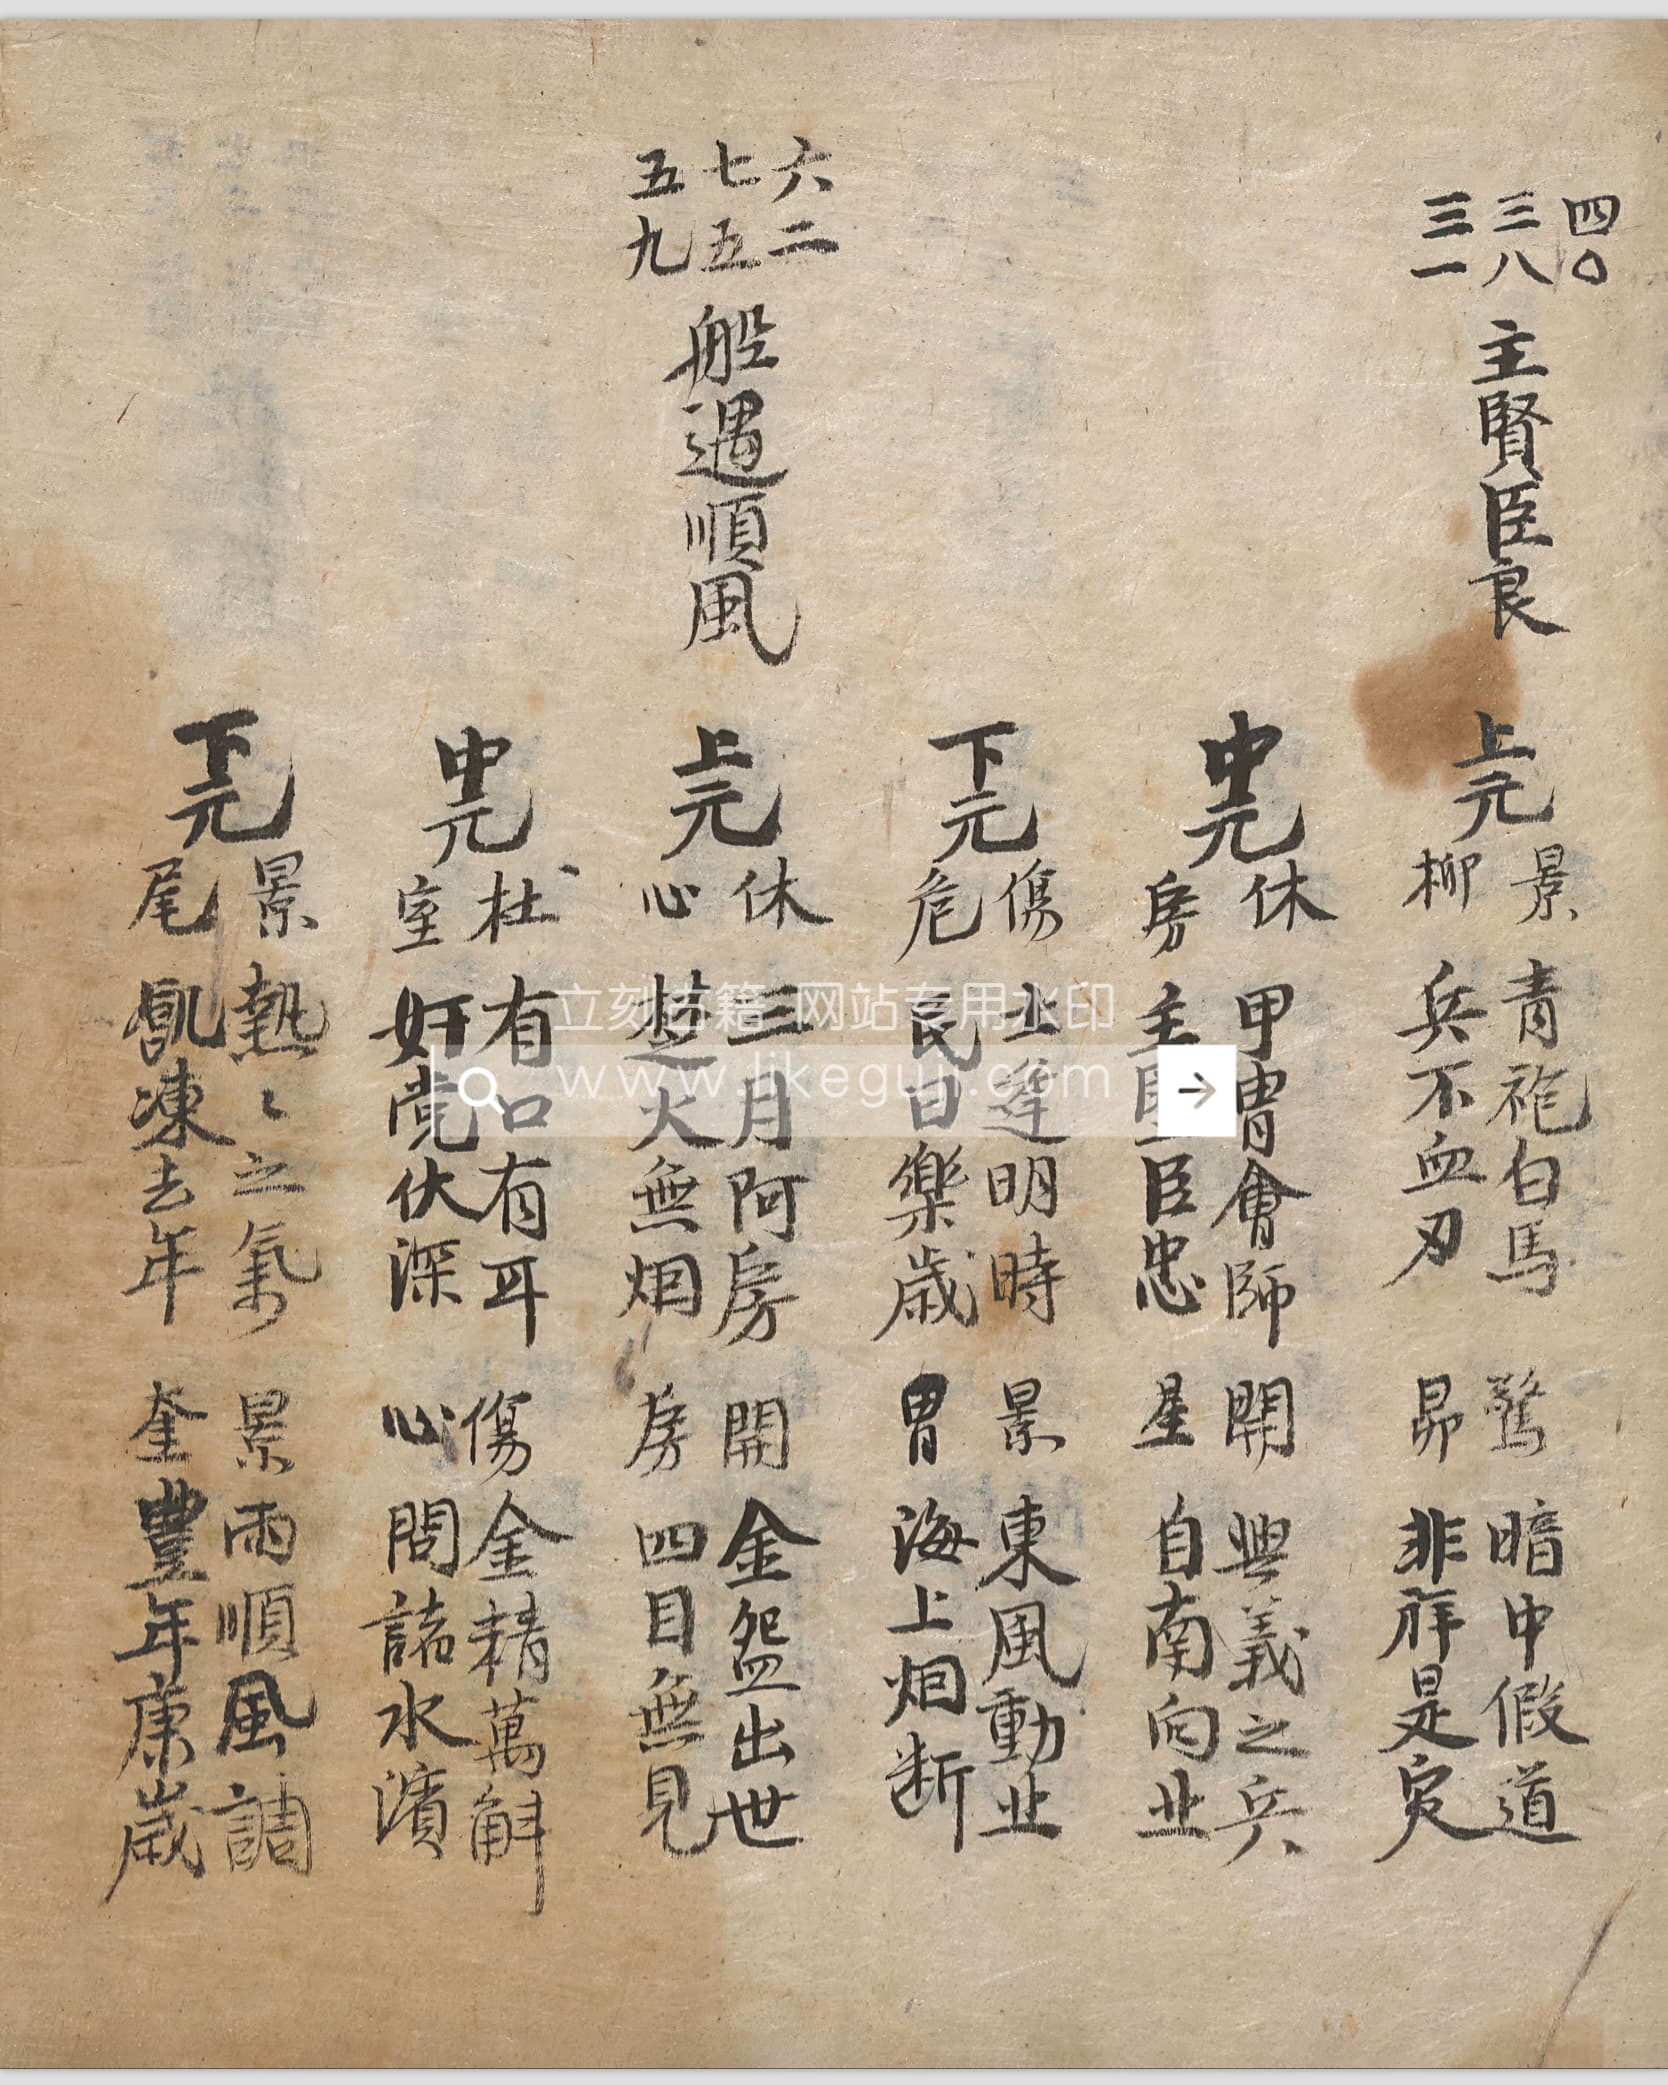 四〇
三八
三一
主賢臣良
上元
景 青袍白馬 驚 暗中假道
柳 兵不血刃 昴 非祥是定
中元
休 甲冑會師 開 興義之兵
房 主臣忠 星 自南向北
下元
傷 上逢明時 景 東風動北
危 民日樂歲 胃 海上烟断
六二
七五
五九
船遇順風
上元
休 三月阿房 開 金盌出世
心 楚火無烟 房 四目無見
中元
杜 有口有耳 傷 金精萬斛
室 奸党伏深 心 問諸水濱
下元
景 熱〻之氣 景 雨順風調
尾 飢凍去年 奎 豊年康歲
立刻古籍 网站专用水印
www.likeguji.com